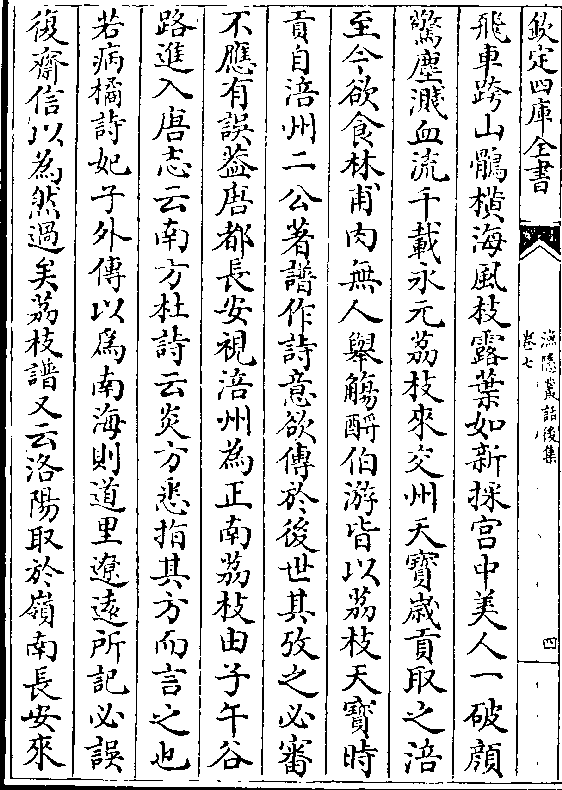 欽定四庫全書
漁隱叢話後集
卷七
四
飛車跨山鶻横海風枝露葉如新採宫中美人一破顔
驚塵濺血流千載永元荔枝來交州天寶歳貢取之涪
至今欲食林甫肉無人舉觴酹伯游皆以荔枝天寶時
貢自涪州二公著譜作詩意欲傳於後世其攷之必審
不應有誤葢唐都長安視涪州為正南荔枝由子午谷
路進入唐志云南方杜詩云炎方悲指其方而言之也
若病橘詩妃子外傳以爲南海則道里遼遠所記必誤
復齋信以為然過矣荔枝譜又云洛陽取於嶺南長安來